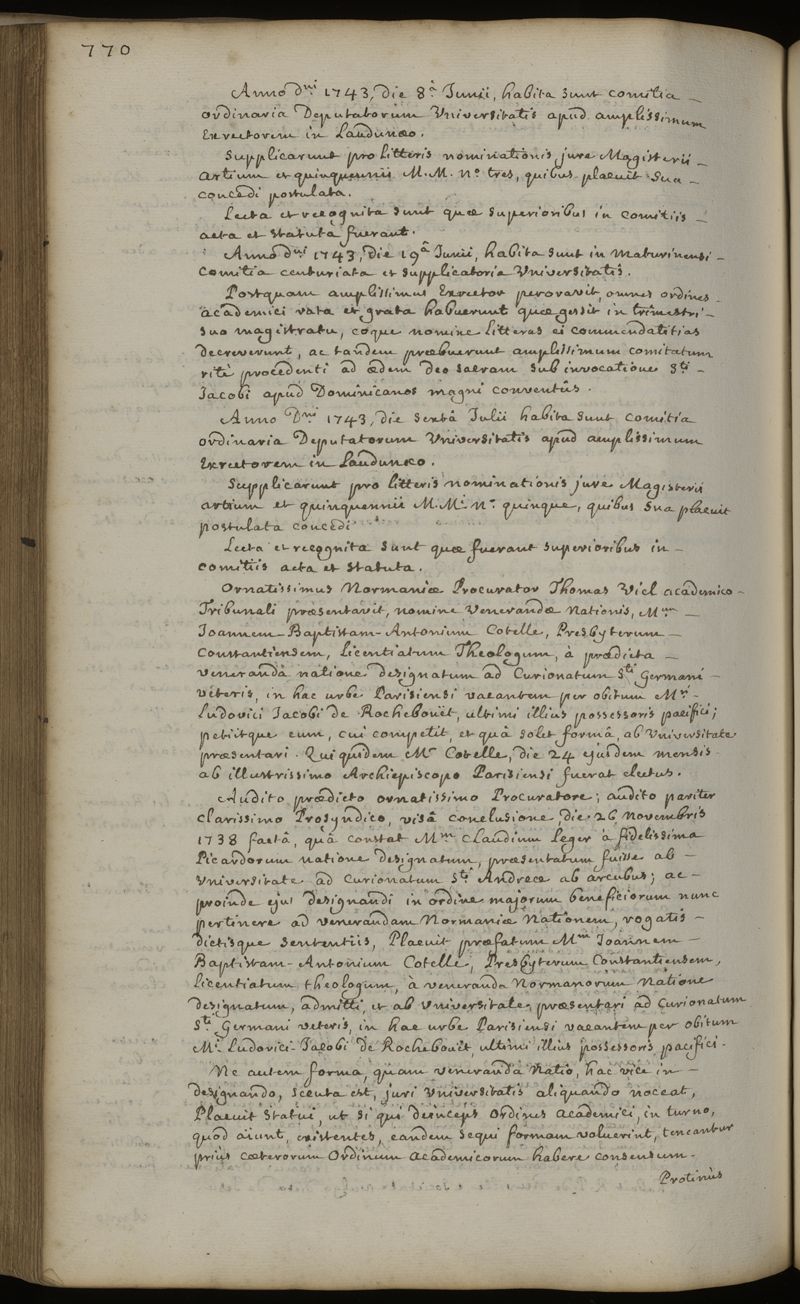 770
Anno Dni 1743, die 8â Junii, habita sunt comitia
ordinaria Deputatorum Universitatis apud amplissimum
Exrectorem in Laudunæo.
Supplicarunt pro litteris nominationis jure Magisterii
artium et quinquennii M.M. no tres, quibus placuit sua
concedi postulata.
Lecta et recognita sunt quæ superioribus in comitiis
acta et statuta fuerant.
Anno Dni 1743, die 19â Junii, habita sunt in Maturinensi
comitia centuriata et supplicatoria Universitatis.
Postquam amplissimus Exrector peroravit, omnes ordines
academici rata et grata habuerunt quæ gessit in trimestri
suo magistratu, eoque nomine litteras ei commendatitias
decreverunt, ac tandem præbuerunt amplissimum comitatum
ritè procedenti ad ædem Deo sacram sub invocatione Sti
Jacobi apud Dominicanos magni conventûs.
Anno Dni 1743, die sextâ Julii habita sunt comitia
ordinaria Deputatorum Universitatis apud amplissimum
Exrectorem in Laudunæo.
Supplicarunt pro litteris nominationis jure Magisterii
artium et quinquennii M.M. no quinque, quibus sua placuit
postulata concedi
Lecta et recognita sunt quæ fuerant superioribus in
comitiis acta et statuta.
Ornatissimus Normaniæ Procurator Thomas Viel academico
Tribunali præsentavit, nomine Venerandæ Nationis, Mum
Joannem-Baptistam-Antonium Cotelle, Presbyterum
Constantiensem, Licentiatum Theologum, à prædicta
venerandâ natione designatum ad Curionatum Sti Germani
veteris, in hac urbe Parisiensi vacantem per obitum Mri
Ludovici Jacobi de Rochebouët, ultimi illius possessoris pacifici;
petiitque eum, cui competit, et quâ solet formâ, ab Universitate
præsentari. Qui quidem Mr Cotelle, die 24 ejusdem mensis
ab illustrissimo Archiepiscopo Parisiensi fuerat electus.
Audito prædicto ornatissimo Procuratore; audito pariter
clarissimo Prosyndico, visâ conclusione die 26 Novembris
1738 factâ, quâ constat Mum Claudium Leger à fidelissima
Picardorum natione designatum, præsentatum fuisse ab
Universitate ad Curionatum Sti Andreæ ab arcubus; ac
proinde ejus designandi in ordine majorum beneficiorum nunc
pertinere ad venerandam Normaniæ Nationem, rogatis
dictisque sententiis, Placuit præfatum Mum Joannem
Baptistam-Antonium Cotelle, Presbyterum Constantiensem,
Licentiatum theologum, à veneranda Normanorum Natione
designatum, admitti, et ab Universitate præsentari ad Curionatum
Sti Germani veteris, in hac urbe Parisiensi vacantem per obitum
Mri Ludovici-Jacobi de Rochebouët, ultimi illius possessoris pacifici.
Ne autem forma, quam veneranda Natio, hac vice in
designando, secuta est, juri Universitatis aliquando noceat,
Placuit statui, ut si qui deinceps ordines academici, in turno,
quod aiunt, existentes, eandem sequi formam voluerint, teneantur
priùs cæterorum Ordinum academicorum habere consensum.
Protinùs